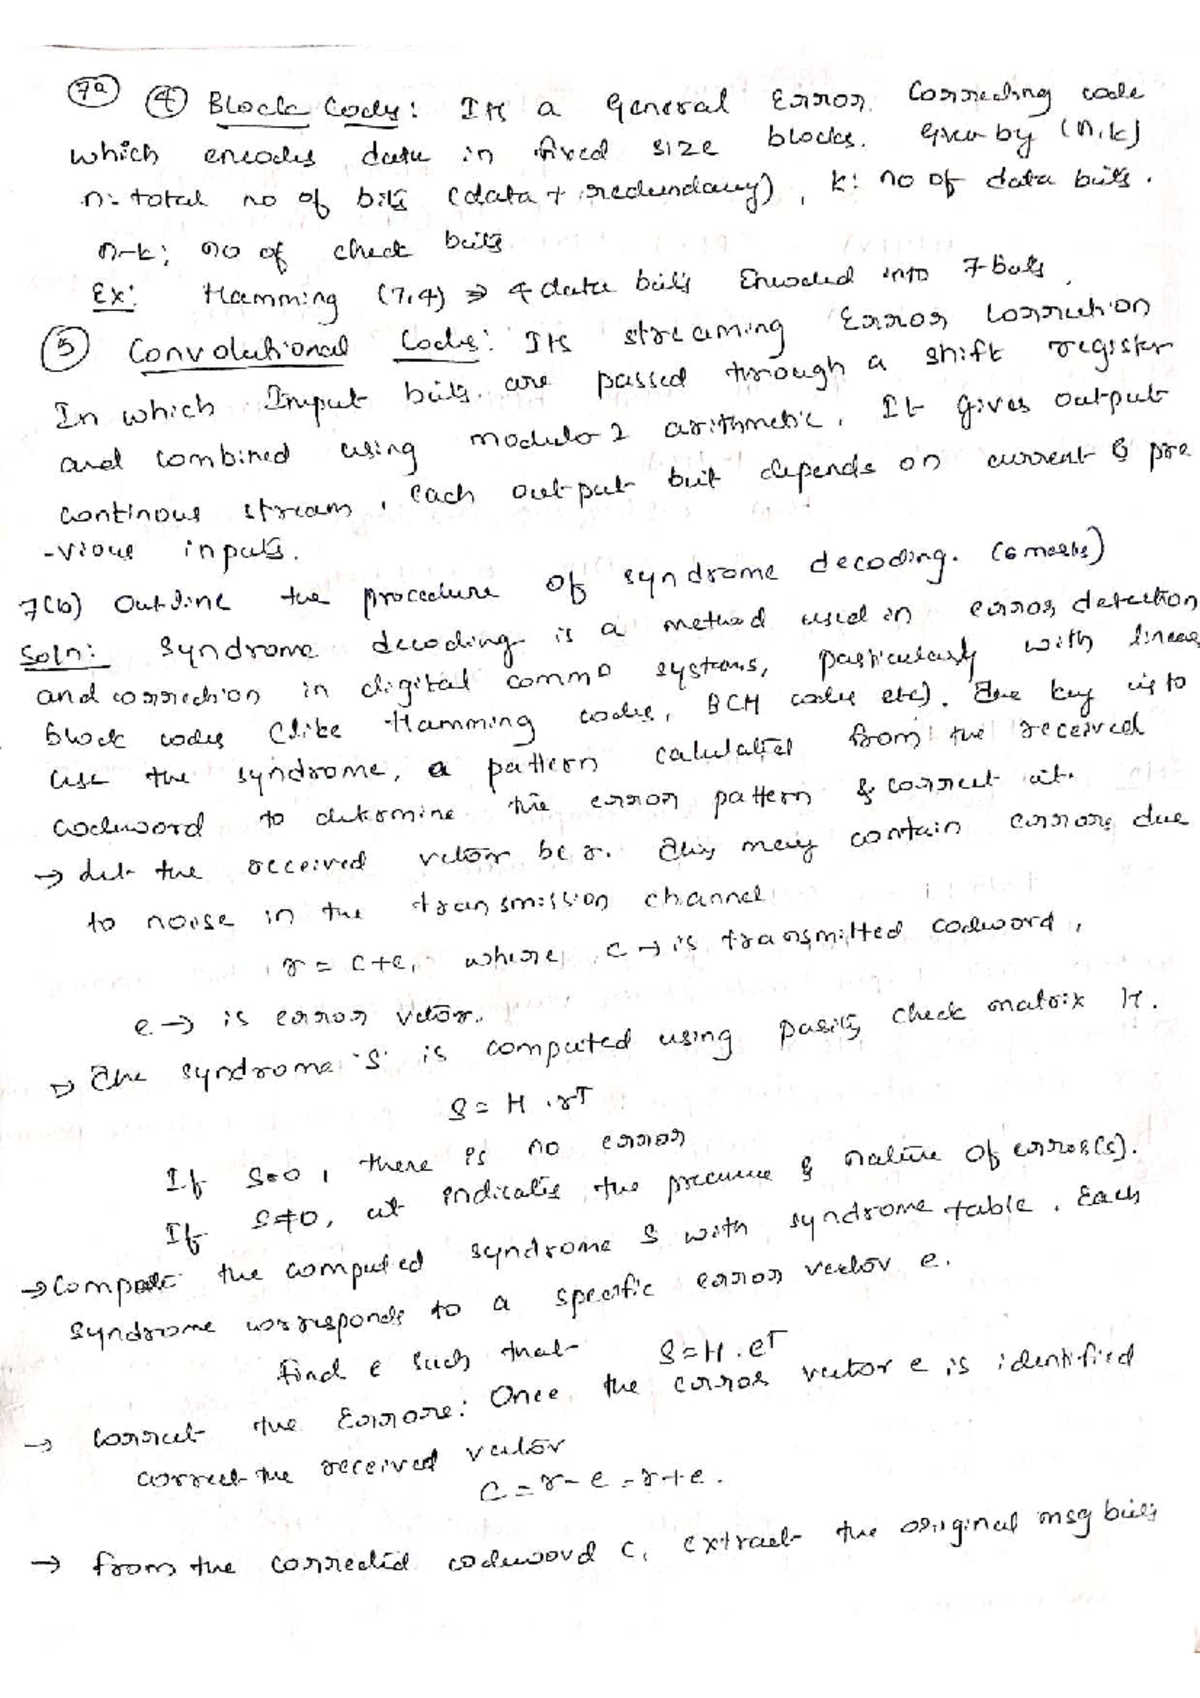 7a (4) Block Codes: Its a general Error Correcting code
which encodes data in fixed size blocks. given by (n,k)
n: total no of bits (data + redundancy), k: no of data bits.
n-k: no of check bits
Ex: Hamming (7,4) ⇒ 4 data bits Encoded into 7 bits.
(5) Convolutional Codes: Its streaming Error Correction
In which Input bits are passed through a shift register
and combined using modulo 2 arithmetic. It gives output
continous stream, each output bit depends on current & pre
-vious inputs.
7(b) Outline the procedure of syndrome decoding. (6 marks)
Soln: Syndrome decoding is a method used in error detection
and correction in digital commn systems, particularly with linear
block codes (like Hamming codes, BCH codes etc). The key is to
use the syndrome, a pattern calculated from the received
codeword to determine the error pattern & correct it.
→ Let the received vector be r. This may contain errors due
to noise in the transmission channel
r = c+e, where c → is transmitted codeword,
e → is error vector.
→ The syndrome 'S' is computed using parity check matrix H.
S = H . rT
If S=0, there is no error
If S≠0, it indicates the presence & nature of error(s).
→ Compare the computed syndrome S with syndrome table. Each
syndrome corresponds to a specific error vector e.
find e such that S = H . eT
→ Correct the Errors: Once the error vector e is identified
correct the received vector
C = r - e = r + e.
→ from the corrected codeword C, extract the original msg bits